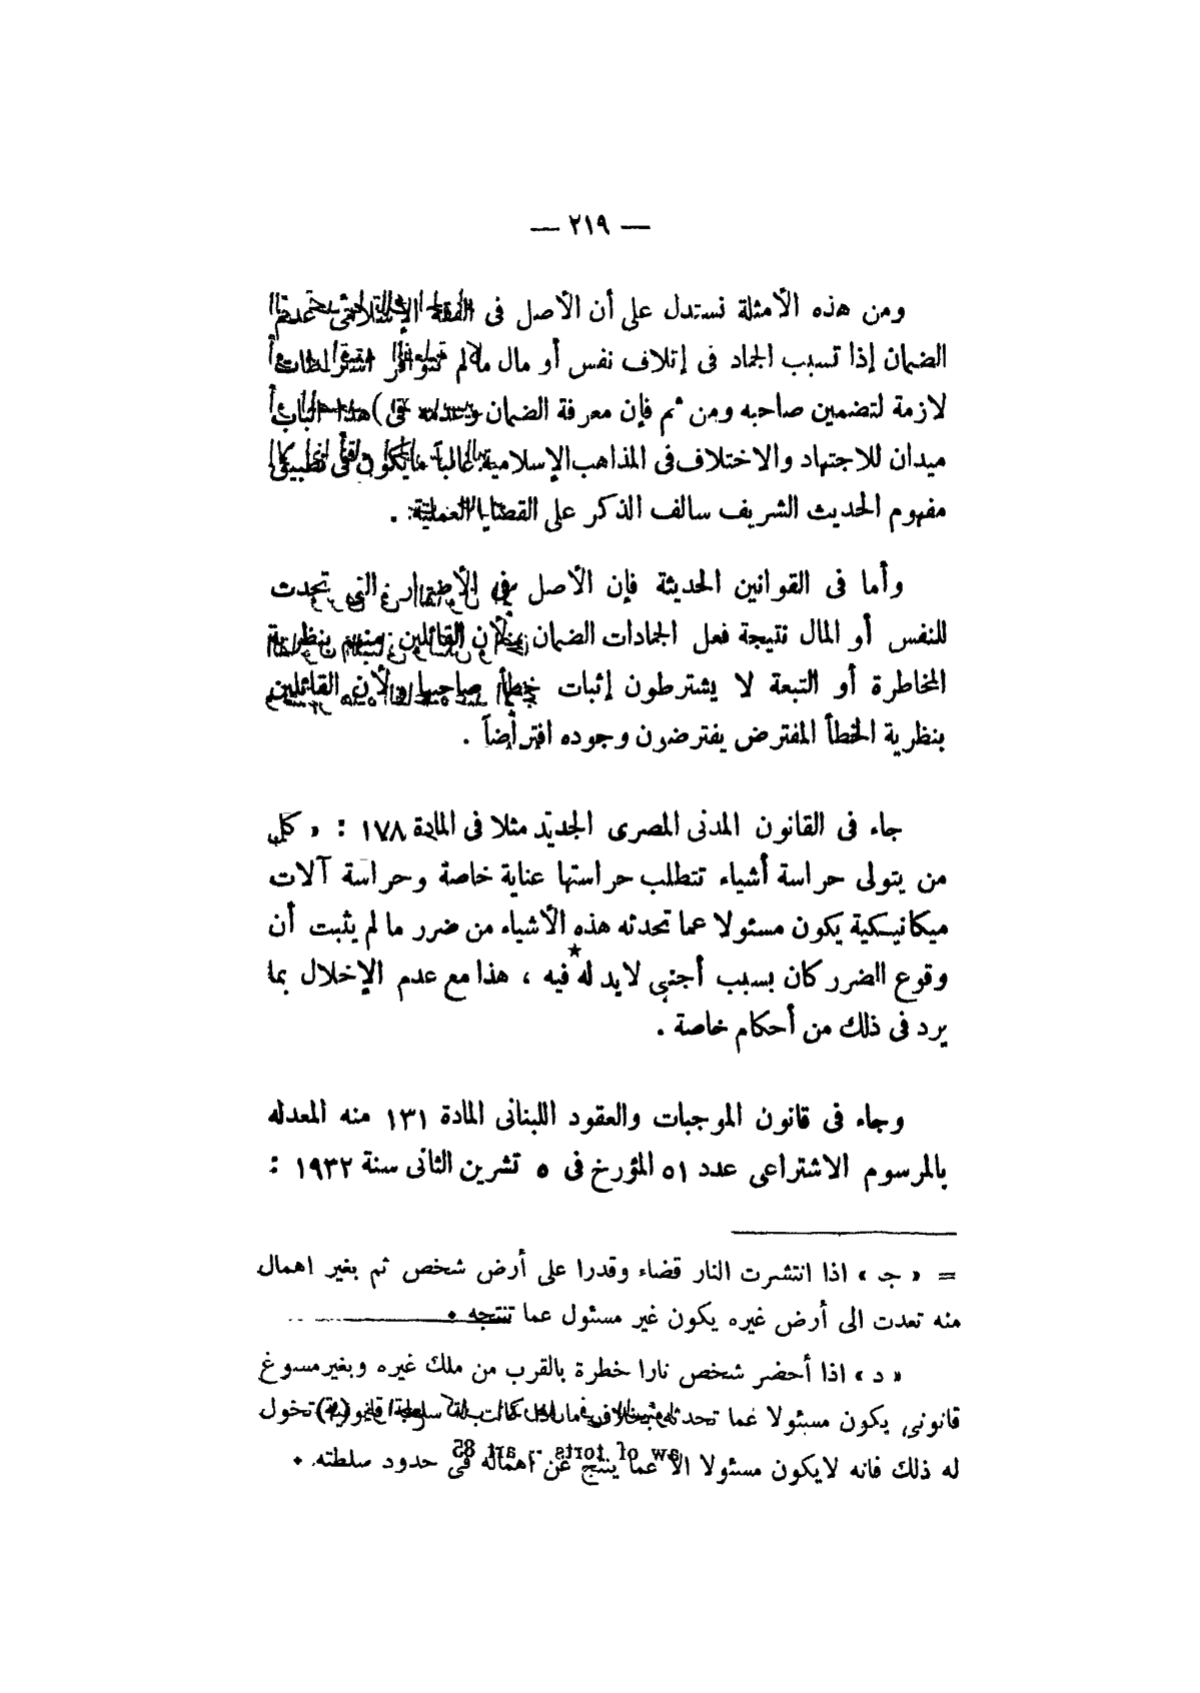 — ٢١٩ —
ومن هذه الأمثلة نستدل على أن الأصل فى الفقه الإسلامى عدم
الضمان إذا تسبب الجماد فى إتلاف نفس أو مال مالم تتوافر اشتراطات
لازمة لتضمين صاحبه ومن ثم فإن معرفة الضمان وعدمه فى هذا الباب
ميدان للاجتهاد والاختلاف فى المذاهب الإسلامية غالباً مايكون فى تطبيق
مفهوم الحديث الشريف سالف الذكر على القضايا العملية .
وأما فى القوانين الحديثة فإن الأصل فى الأضرار التى تحدث
للنفس أو المال نتيجة فعل الجمادات الضمان لأن القائلين منهم بنظرية
المخاطرة أو التبعة لا يشترطون إثبات خطأ صاحبها ولأن القائلين
بنظرية الخطأ المفترض يفترضون وجوده افتراضاً .
جاء فى القانون المدنى المصرى الجديد مثلا فى المادة ١٧٨ : « كل
من يتولى حراسة أشياء تتطلب حراستها عناية خاصة وحراسة آلات
ميكانيكية يكون مسئولا عما تحدثه هذه الأشياء من ضرر ما لم يثبت أن
وقوع الضرر كان بسبب أجنبى لايد له فيه ، هذا مع عدم الإخلال بما
يرد فى ذلك من أحكام خاصة .
وجاء فى قانون الموجبات والعقود اللبنانى المادة ١٣١ منه المعدله
بالمرسوم الاشتراعى عدد ٥١ المؤرخ فى ٥ تشرين الثانى سنة ١٩٣٢ :
= « جـ » اذا انتشرت النار قضاء وقدرا على أرض شخص ثم بغير اهمال
منه تعدت الى أرض غيره يكون غير مسئول عما تنتجه .
« د » اذا أحضر شخص نارا خطرة بالقرب من ملك غيره وبغير مسوغ
قانونى يكون مسئولا عما تحدثه بخلاف ما اذا كانت له سلطة قانونية تخول
له ذلك فانه لايكون مسئولا الا عما ينتج عن اهماله فى حدود سلطته .